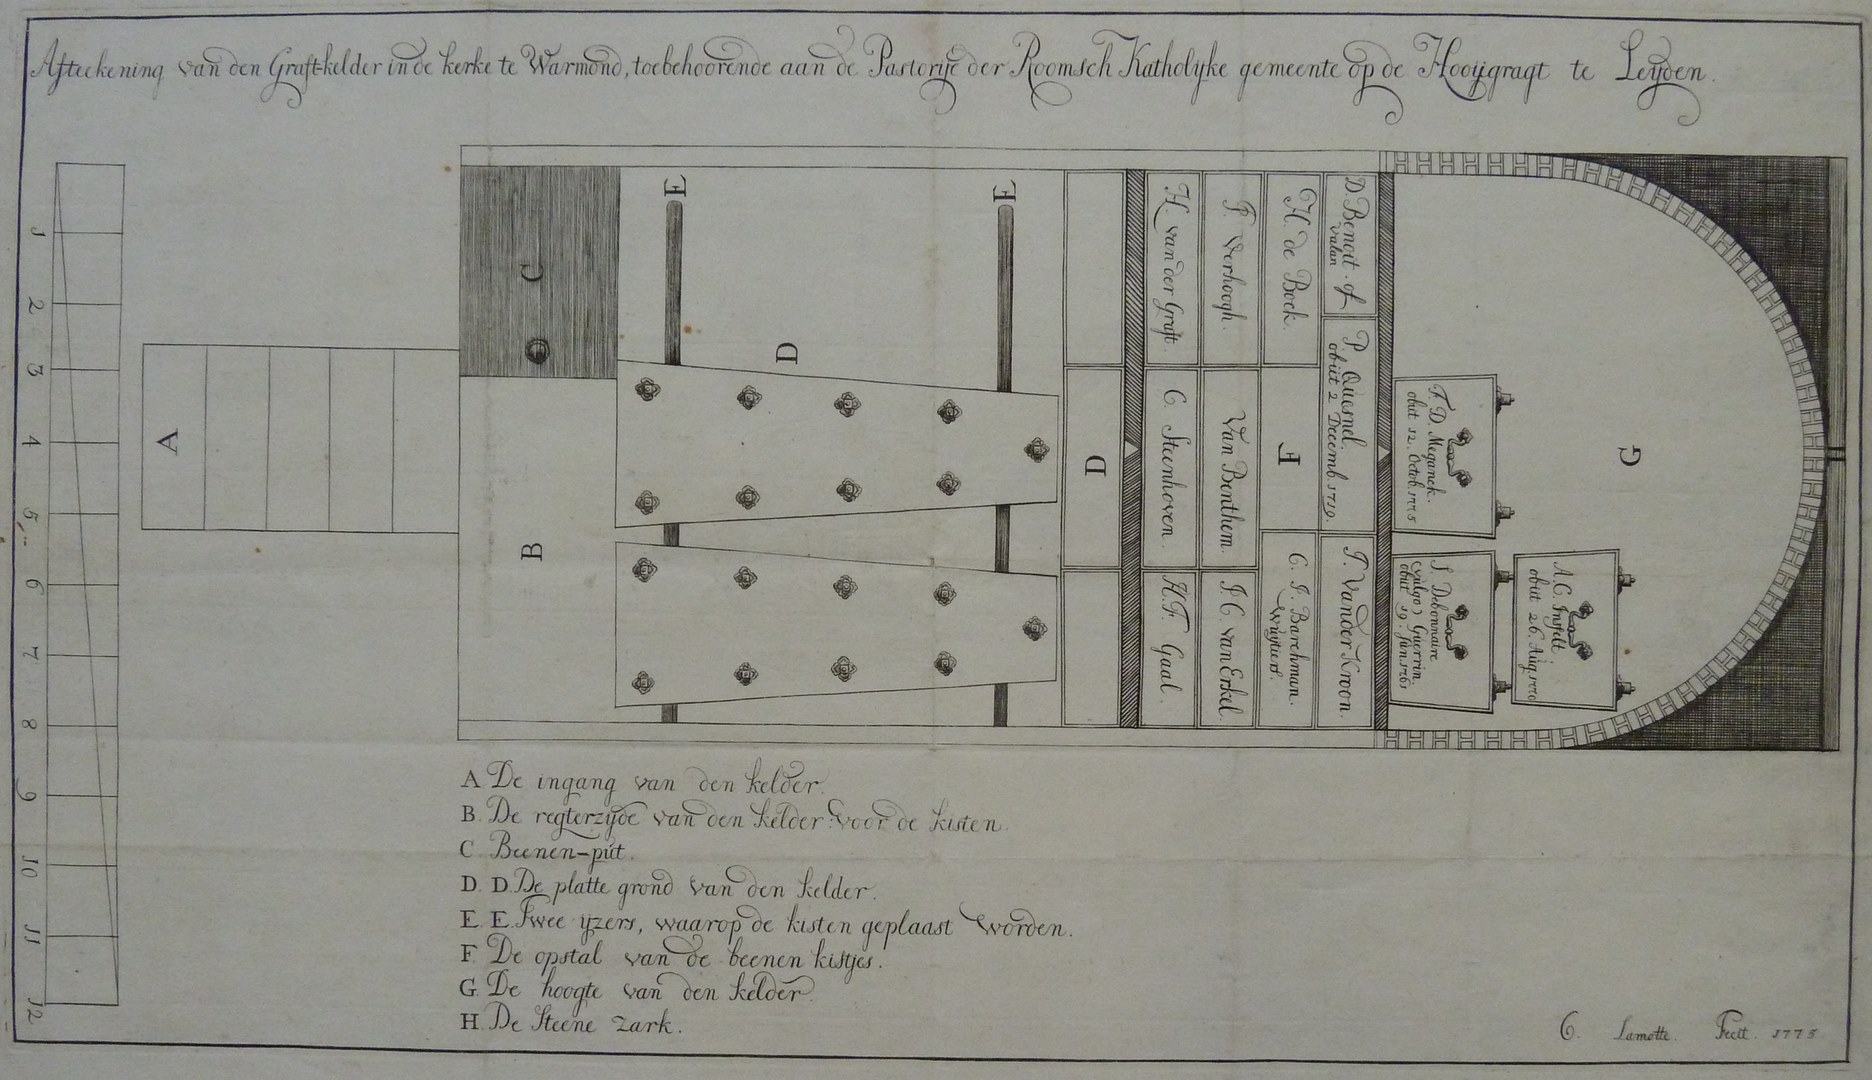 Afteekening van den Graft-kelder in de kerke te Warmond, toebehoorende aan de Pastorije der Roomsch Katholyke gemeente op de Hooijgragt te Leyden.
1
2
3
4
5
6
7
8
9
10
11
12
A
B
C
E
E
D
D
F
G
H. van der Graft.
C. Steenhoven.
H. F. Gaal.
P. Verhoogh.
Van Benthem.
J. C. van Erkel
H. de Bock.
C. J. Barchman
Wuytiers.
D. Benoit of
P. Quesnel.
obiit 2 Decemb. 1719.
J. Vander Kroon.
F. D. Meganck.
obiit 12. Octob. 1775
S. Debonnaire
(vulgo) Guerrin.
obiit 19. Jun. 1761
A. C.
obiit 26. Aug. 1770
A De ingang van den kelder.
B. De regterzyde van den kelder voor de kisten.
C Beenen-put.
D. D. De platte grond van den kelder.
E. E. Twee yzers, waarop de kisten geplaast worden.
F. De opstal van de beenen kistjes.
G. De hoogte van den kelder.
H. De Steene Zark.
C. Lamotte. Fecit. 1775